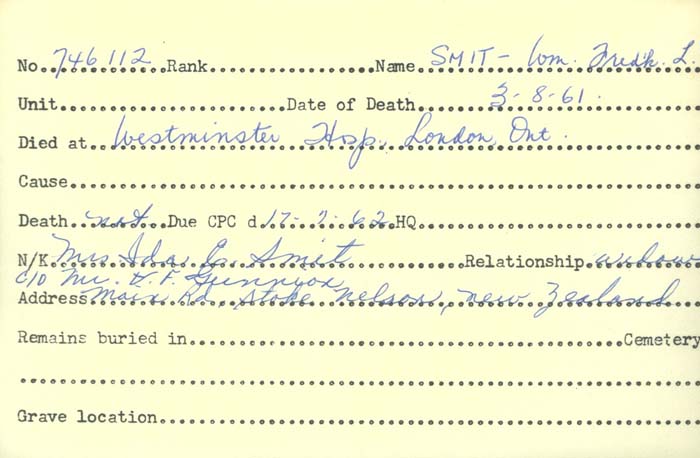 No. 746112 Rank Name SMIT - Wm. Fredk. L.
Unit Date of Death 3-8-61.
Died at Westminster Hosp, London, Ont.
Cause
Death not Due CPC d 17-7-62 HQ
N/K Mrs Ida E. Smit Relationship widow
c/o Mr. F.
Address Main Rd, Stoke Nelson, New Zealand
Remains buried in Cemetery
Grave location